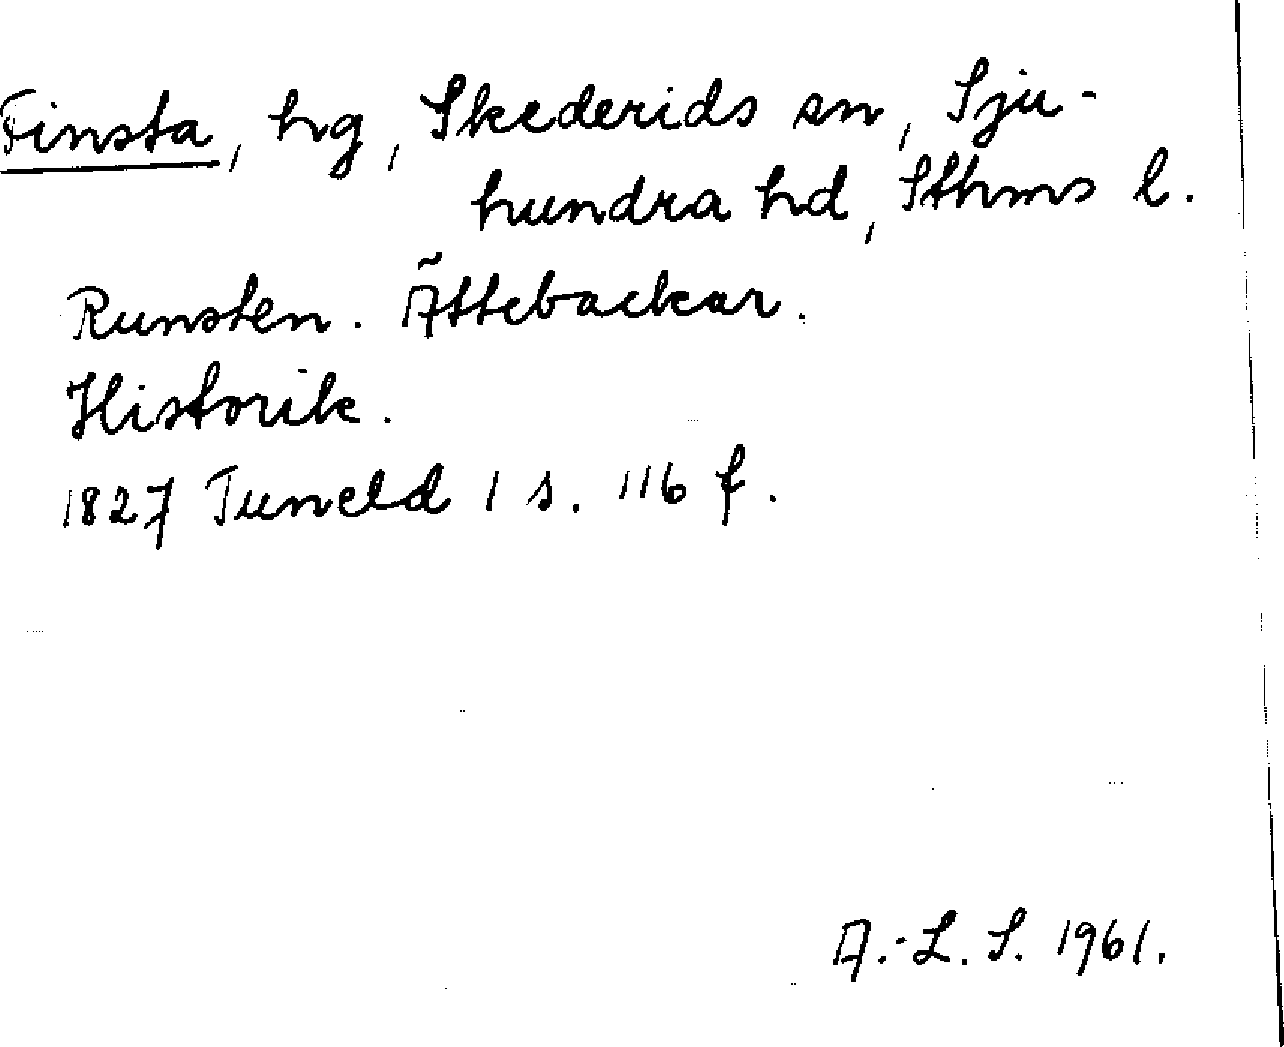 Finsta, hg, Skederids sn, Sju-
hundra hd, Sthms l.
Runsten. Ättebackar.
Historik.
1827 Tuneld 1 s. 116 f.
A.-L. S. 1961.